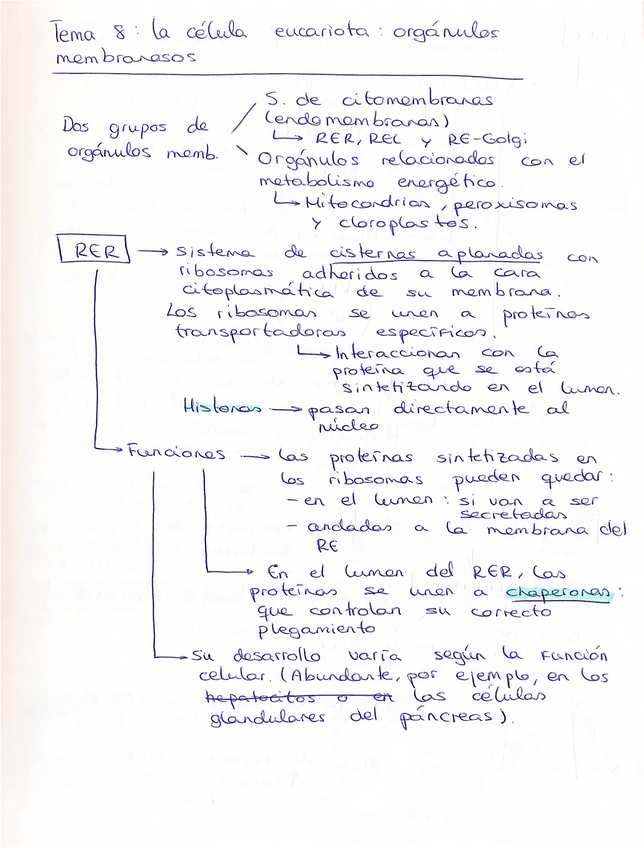 Tema 8: la célula eucariota: orgánulos
membranosos
Dos grupos de
orgánulos memb.
S. de citomembranas
(endomembranas)
RER, REL y RE-Golgi
Orgánulos relacionados con el
metabolismo energético.
Mitocondrias, peroxisomas
y cloroplastos.
RER → Sistema de cisternas aplanadas con
ribosomas adheridos a la cara
citoplasmática de su membrana.
Los ribosomas se unen a proteínas
transportadoras específicos.
Interaccionan con la
proteína que se está
sintetizando en el lumen.
Histonas → pasan directamente al
núcleo
Funciones → Las proteínas sintetizadas en
los ribosomas pueden quedar:
- en el lumen: si van a ser
secretadas
- ancladas a la membrana del
RE
En el lumen del RER, las
proteínas se unen a chaperonas:
que controlan su correcto
plegamiento
Su desarrollo varía según la función
celular. (Abundante, por ejemplo, en los
hepatocitos o en las células
glandulares del páncreas).